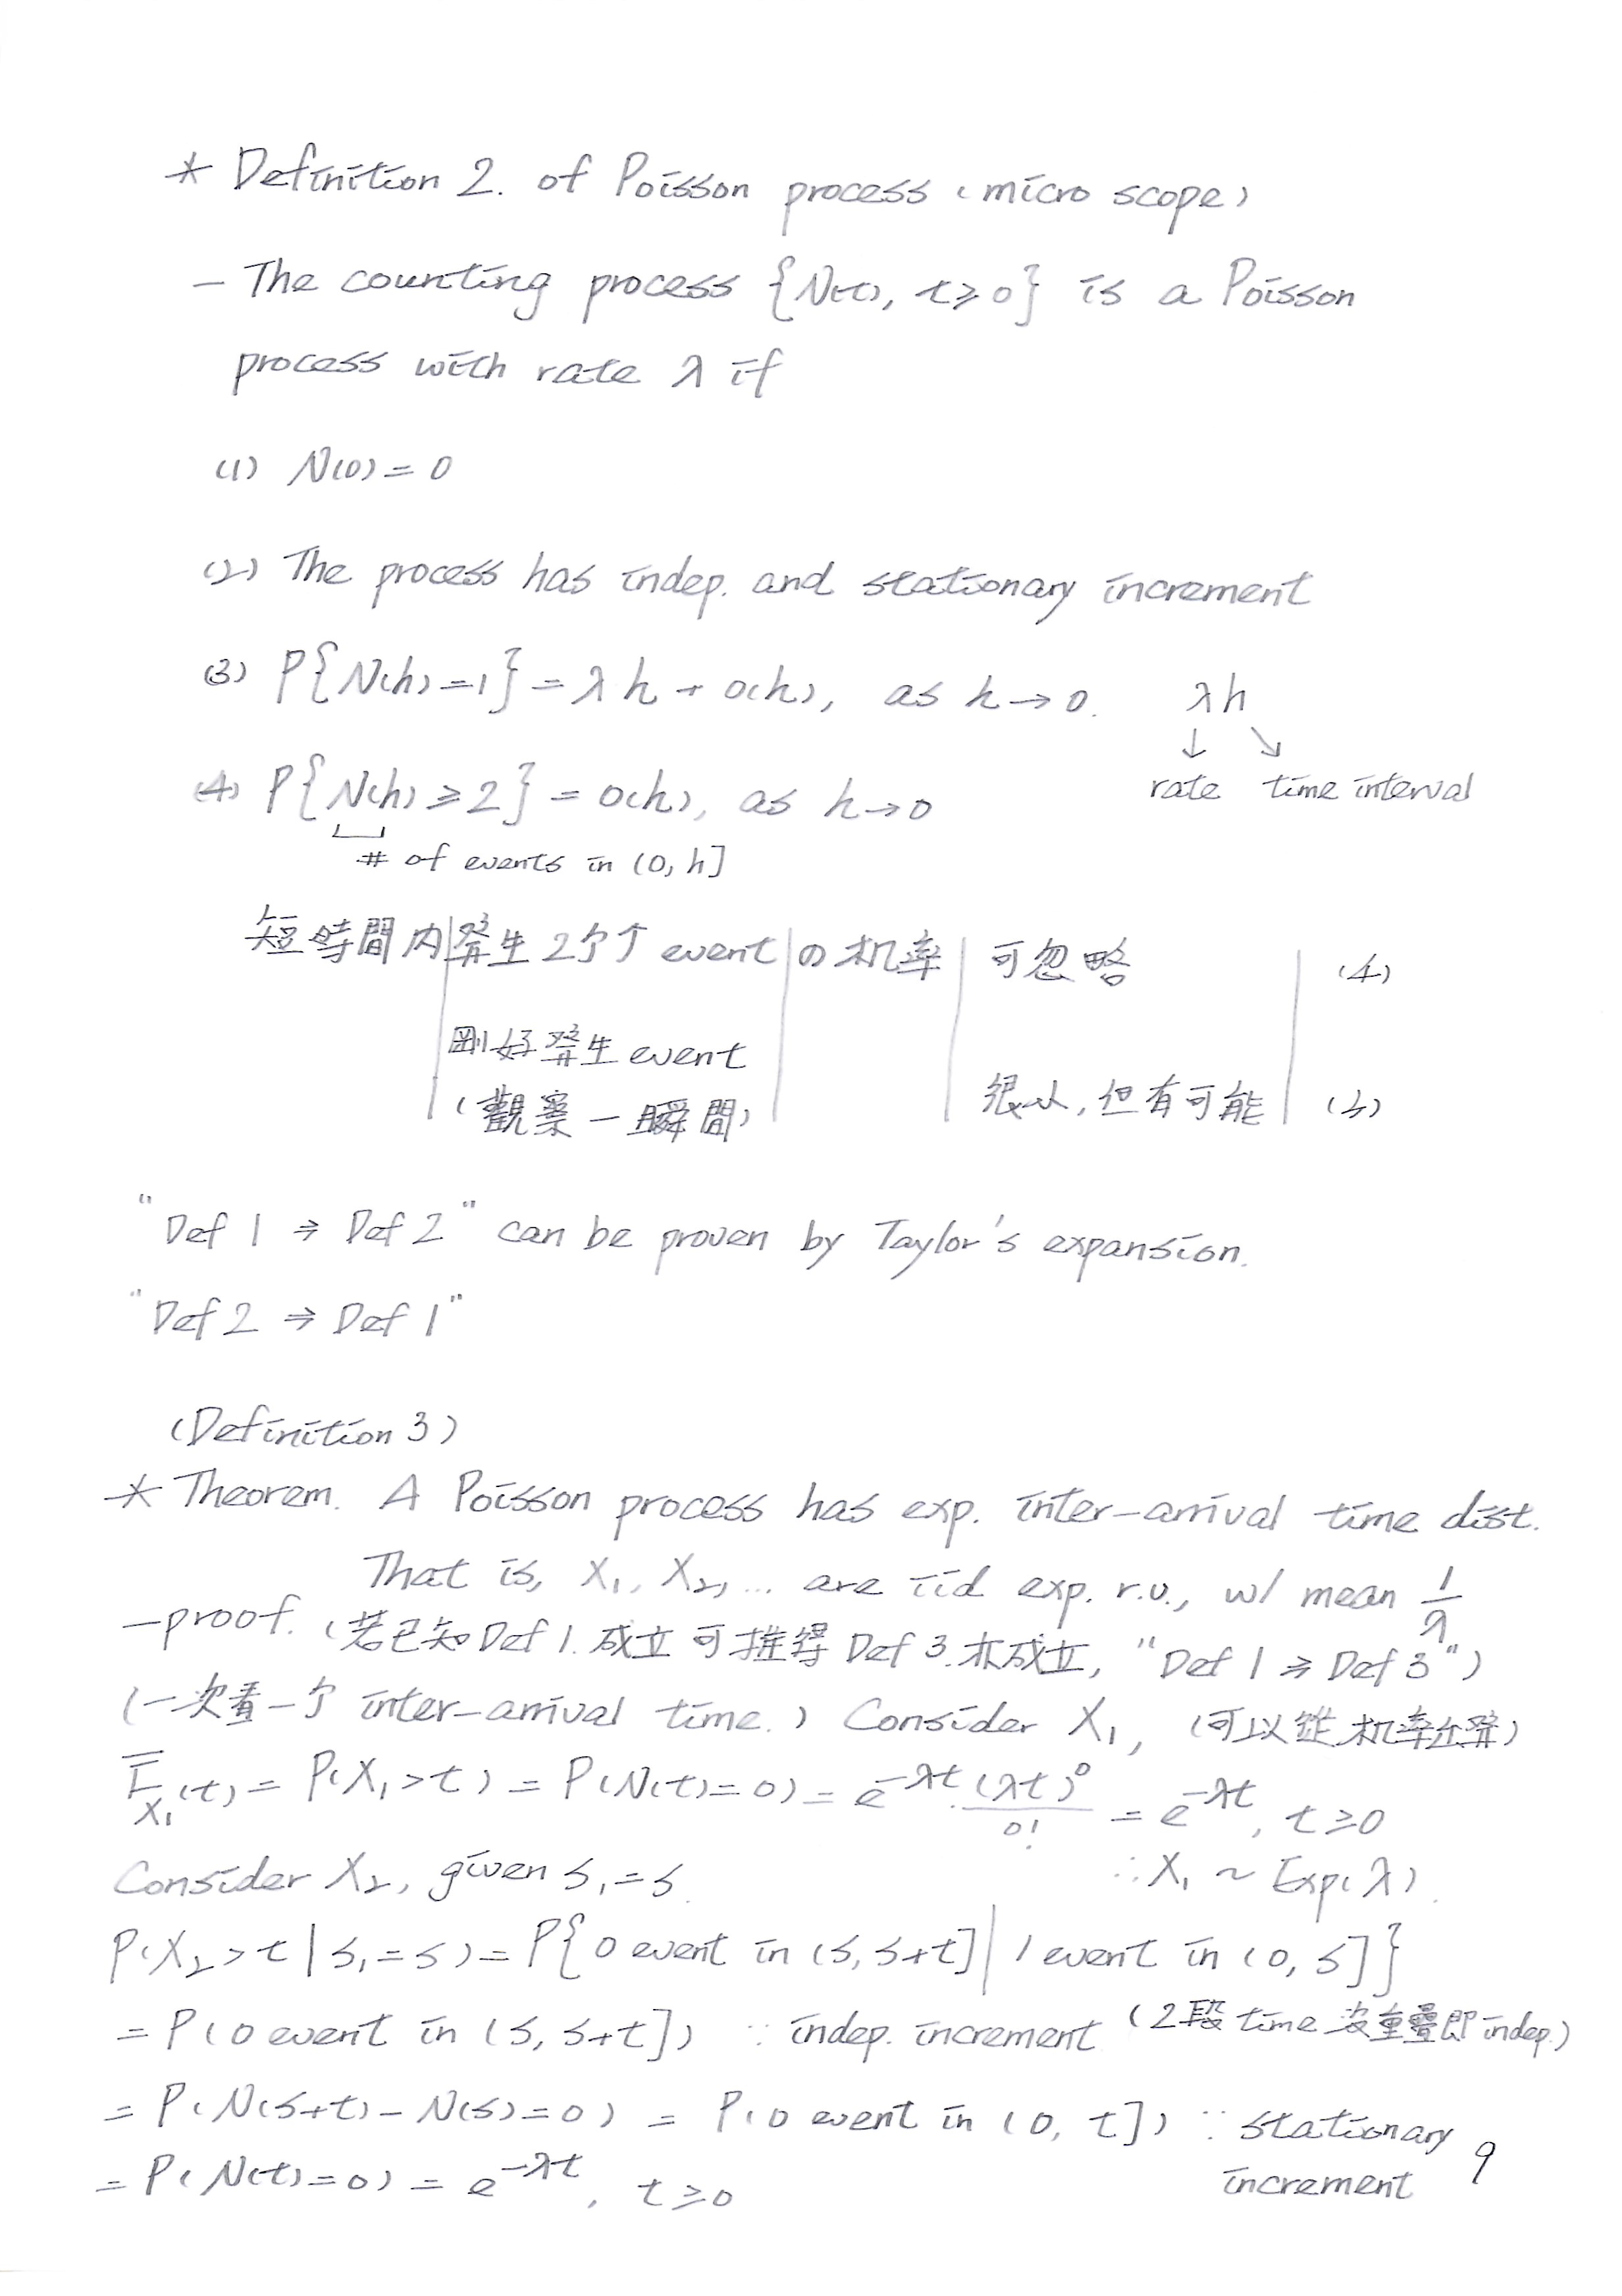 * Definition 2. of Poisson process (micro scope)
- The counting process {N(t), t≥0} is a Poisson
process with rate λ if
(1) N(0) = 0
(2) The process has indep. and stationary increment
(3) P{N(h)=1} = λh + o(h), as h→0. λh
↓ ↘
rate time interval
(4) P{N(h)≥2} = o(h), as h→0
# of events in (0, h]
短時間內|発生2个↑ event|の机率|可忽略| (4)
剛好発生 event
(觀察一瞬間)| |很小,但有可能| (3)
"Def 1 ⇒ Def 2" can be proven by Taylor's expansion.
"Def 2 ⇒ Def 1"
(Definition 3)
* Theorem. A Poisson process has exp. inter-arrival time dist.
That is, X₁, X₂, ... are iid exp. r.v., w/ mean 1/λ
-proof. (若已知Def 1.成立可推得Def 3.亦成立, "Def 1 ⇒ Def 3")
(一次看一个 inter-arrival time.) Consider X₁, (可以從机率出発)
F̅_X₁(t) = P(X₁>t) = P(N(t)=0) = e^{-λt}·(λt)⁰/0! = e^{-λt}, t≥0
Consider X₂, given S₁=s. ∴X₁ ~ Exp(λ).
P(X₂>t|S₁=s) = P{0 event in (s, s+t]|1 event in (0, s]}
= P(0 event in (s, s+t]) ∵ indep. increment (2段time沒重疊即indep.)
= P(N(s+t)-N(s)=0) = P(0 event in (0, t]) ∵ stationary
increment
= P(N(t)=0) = e^{-λt}, t≥0
9